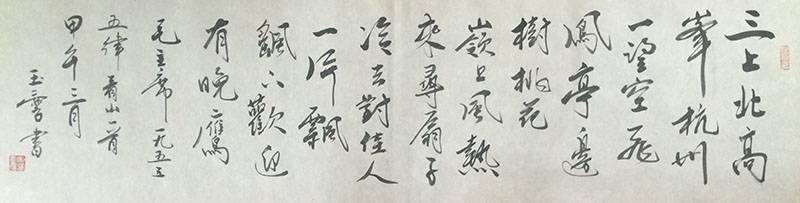 三上北高
峯杭州
一望空飛
鳳亭邊
樹桃花
嶺上風熱
來尋扇子
冷去對佳人
一片飄
飖下歡迎
有晚鷹
毛主席一九五五
五律看山一首
甲午三月
玉 書